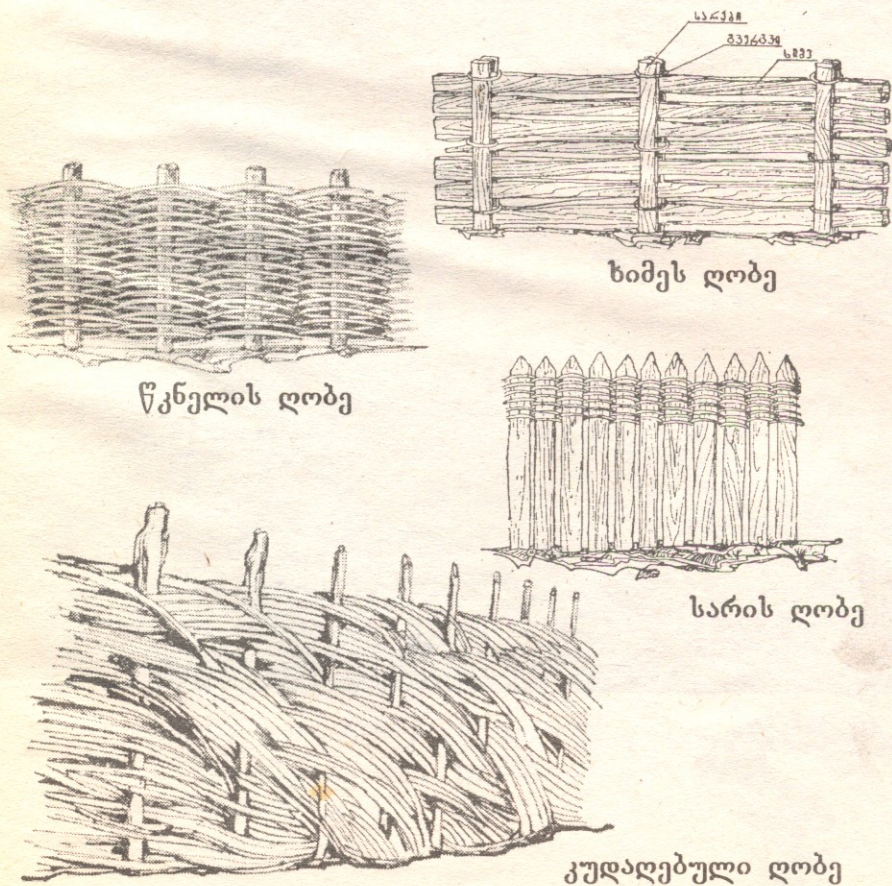 სარები
გვერგვი
ხიმე
ხიმეს ღობე
წკნელის ღობე
სარის ღობე
კუდაღებული ღობე